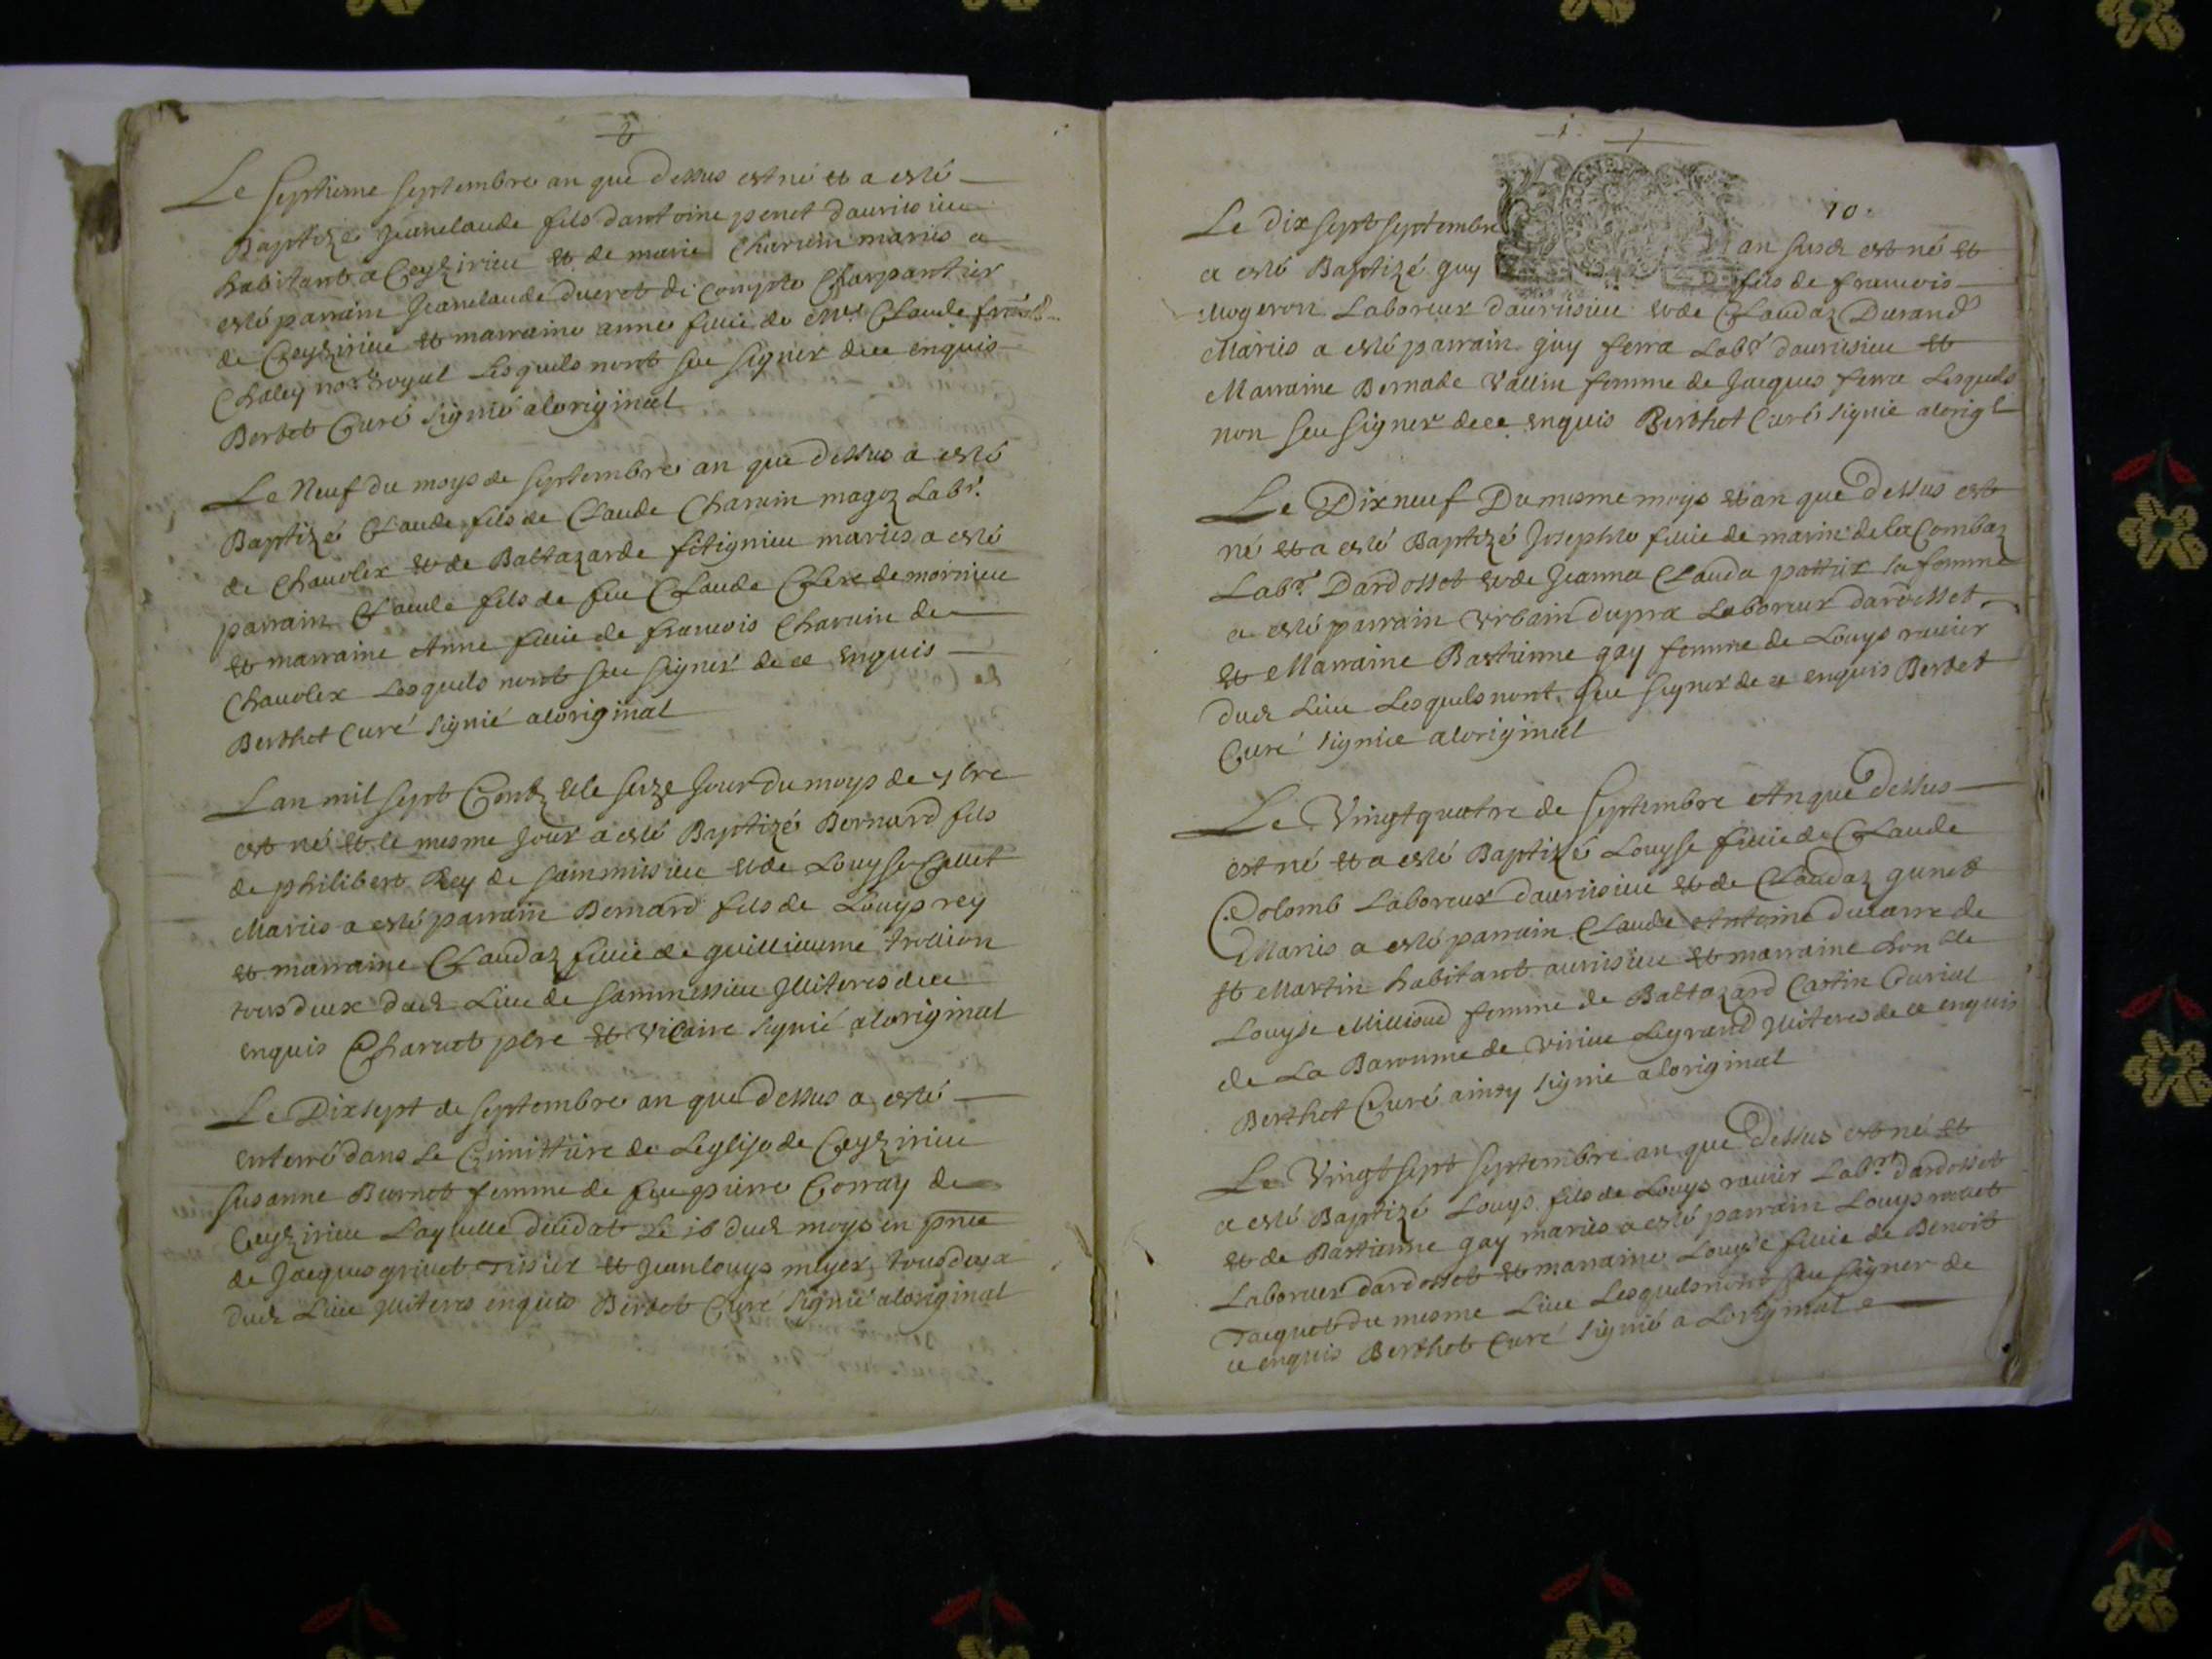 Le septieme septembre an que dessus est né et a esté
Baptizé Jeanclaude fils dantoine penet daurisieu
habitant a Ceyzirieu et de marie Charvin mariés a
esté parrain Jeanclaude ducret di Compte Charpantier
de Ceyzirieu et marraine anne fillie de Me. Claude
Chaley nore. royal Lesquels nont seu signer de ce enquis
Berthet Curé signié aloriginal
Le Neuf du moys de septembre an que dessus a esté
Baptizé Claude fils de Claude Charvin magoz Labr.
de Chavolex et de Baltazarde fitignieu mariés a esté
parrain Claude fils de feu Claude Clerc de mornieu
et marraine Anne fillie de francois Charvin de
Chavolex Lesquels nont seu signer de ce enquis
Berthet Curé signié aloriginal
Lan mil sept Centz et le seize Jour du moys de 7bre
est né et le mesme Jour a esté Baptizé Bernard fils
de philibert Rey de sammisieu et de Louyse Collet
Mariés a esté parrain Bernard fils de Louys rey
et marraine Claudaz fillie de guilliaume trollion
tous deux dud Lieu de sammessieu Illiteres de ce
enquis Charvet pbre et Vicaire signié aloriginal
Le Dixsept de septembre an que dessus a esté
enterré dans Le Cimittiere de Leglise de Ceyzirieu
susanne Burnet femme de feu pierre Corray de
Ceyzirieu Laquelle décédat Le 16 dud moys en pnce
de Jacques grivet tisier et Jeanlouys meyer tous deux
dud Lieu Illiteres enquis Berthet Curé signié aloriginal
10
Le dix sept septembre an susd est né et
a esté Baptizé guy fils de francois
Mogeron Laboreur daurisieu et de Claudaz Durand
Mariés a esté parrain guy ferra Labr daurisieu et
Marraine Bernade Vallin femme de Jacques ferra Lesquels
non seu signer de ce enquis Berthet Curé signié alorigl
Le Dixneuf Du mesme moys et an que dessus est
né et a esté Baptizé Josephte fillie de marin de la Combaz
Labr. Dardosset et de Jeanna Clauda pattux sa femme
a esté parrain Urbain dupra Laboreur dardosset
et Marraine Bastienne gay femme de Louys ravier
dud Lieu Lesquels nont seu signer de ce enquis Berthet
Curé signié aloriginal
Le Vingtquatre de septembre An que dessus
est né et a esté Baptizé Louyse fillie de Claude
Colomb Laboreur daurisieu et de Claudaz
Mariés a esté parrain Claude Antoine de
st Martin habitant aurisieu et marraine hon ble
Louyse Milliaud femme de Baltazard Castin Curial
de La Baronnie de Virieu Legrand Illiteres de ce enquis
Berthet Curé ainsy signié aloriginal
Le Vingtsept septembre an que dessus est né et
a esté Baptizé Louys fils de Louys ravier Labr. dardosset
et de Bastienne gay mariés a esté parrain Louys
Laboreur dardosset et marraine Louyse fillie de Benoit
Jacquet du mesme Lieu Lesquels nont seu signer de
ce enquis Berthet Curé signié a Loriginal